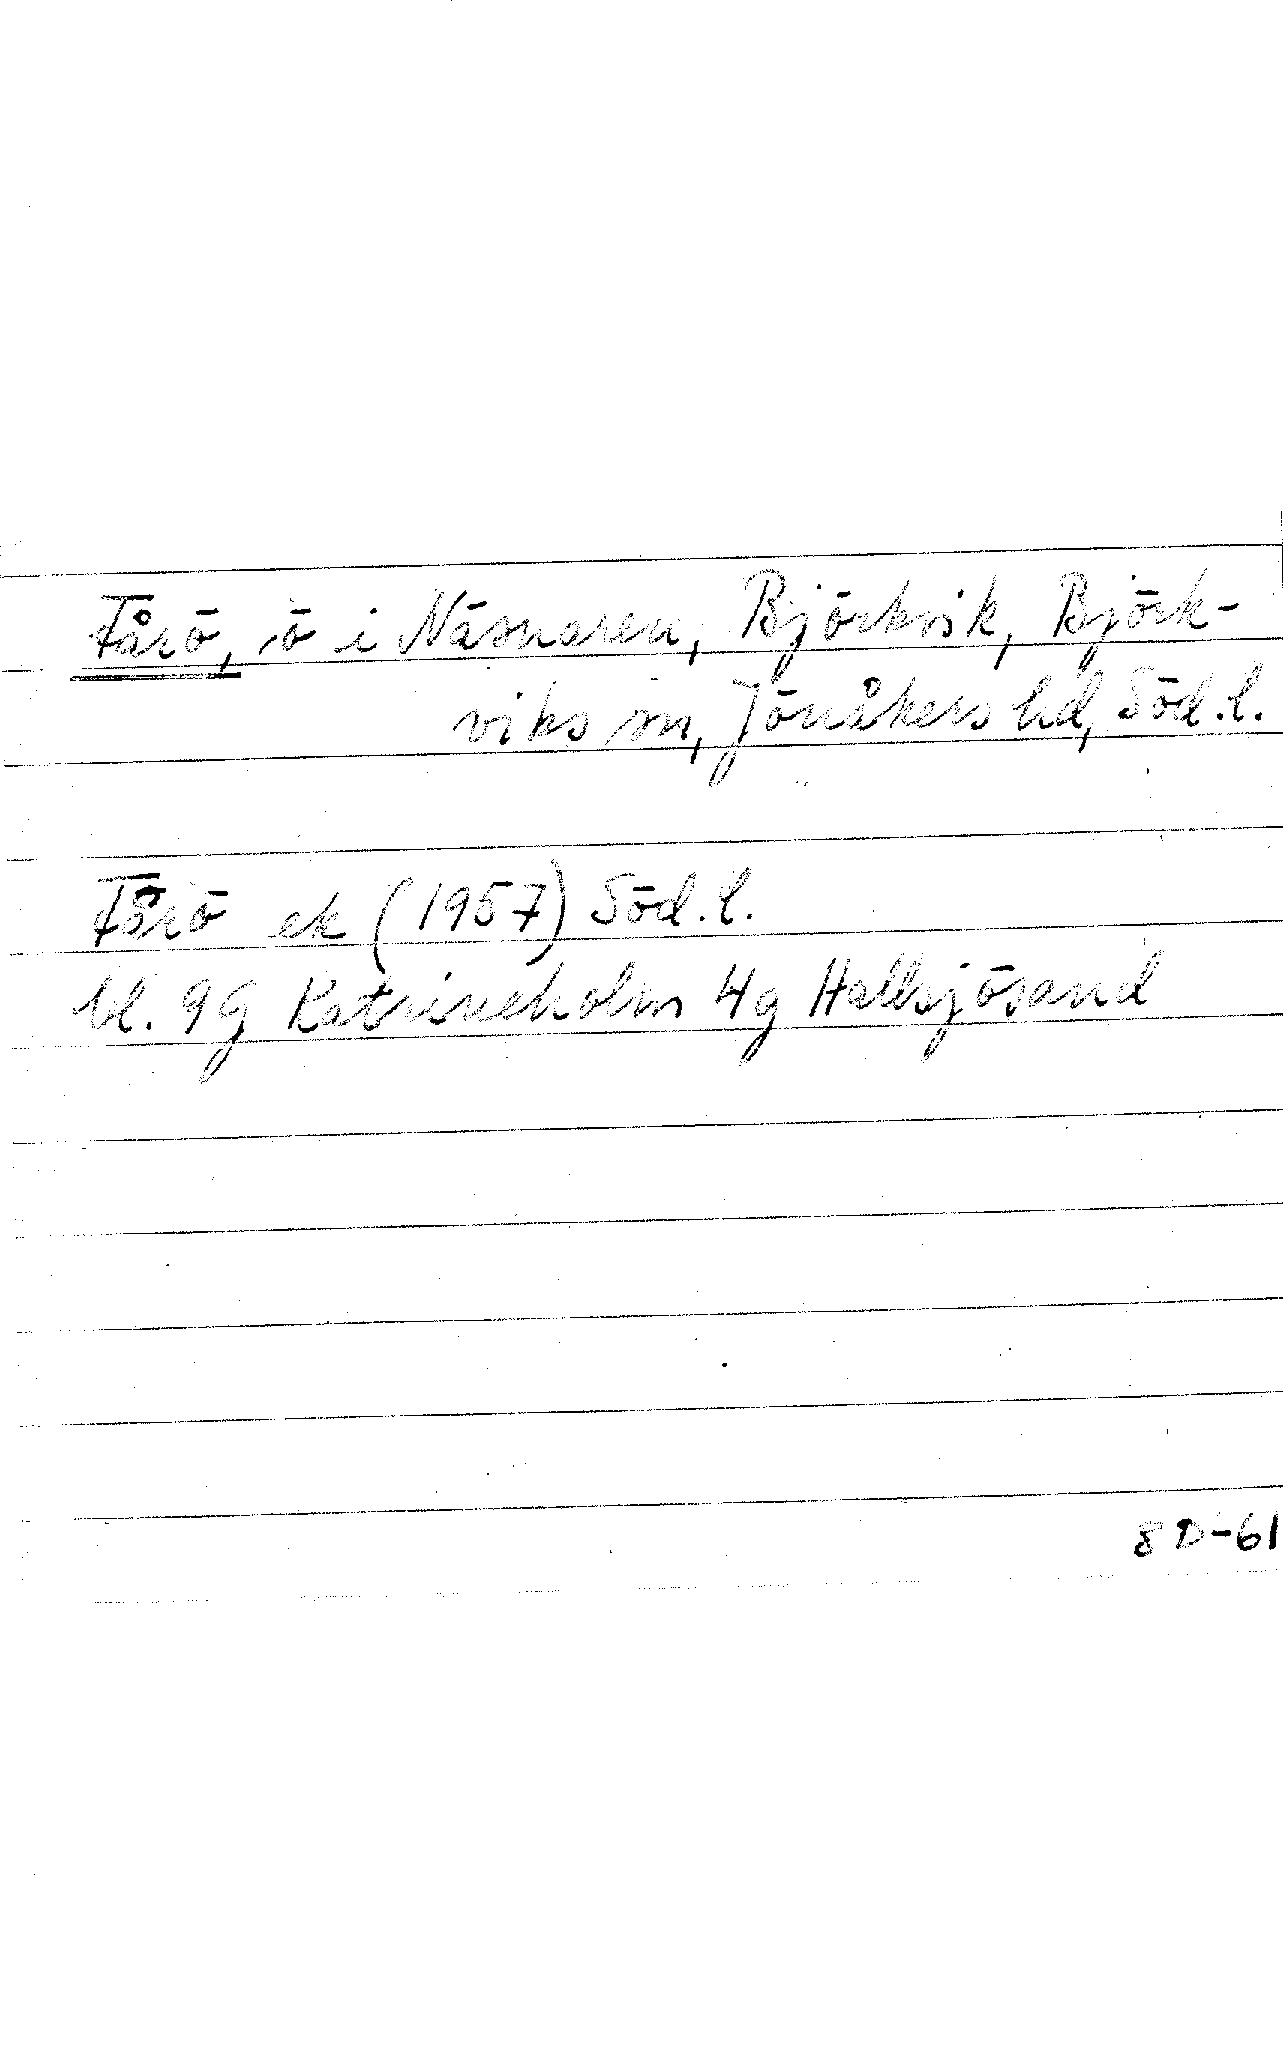 Fårö, ö i Näsnaren, Björkvik, Björk-
viks sn, Jönåkers hd, Söd.l.
Fårö ek (1957) Söd.l.
bl. 9G Katrineholm 4g Hallsjösand
8D-61